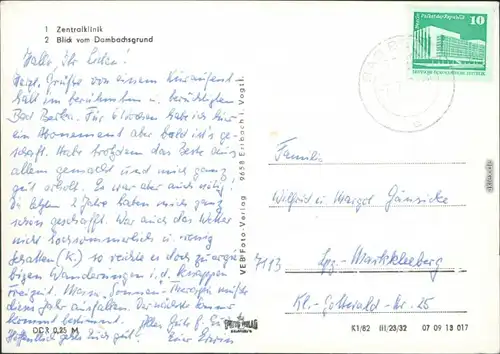 1 Zentralklinik
2 Blick vom Dambachsgrund
Hallo, Ihr Lieben!
Herzl. Grüße von einem Kuraufent-
halt im berühmten u. berüchtigten
Bad Berka. Für 6 Wochen hatte ich hier
ein Abonnement aber bald ist's ge-
schafft. Habe trotzdem das Beste aus
allem gemacht und mich ganz
gut erholt. Es war aber auch nötig!
Die letzten 2 Jahre haben mich ganz
schön geschafft. War auch das Wetter
nicht hochsommerlich u. wenig
Schatten (K.) so reichte es doch zu ergie-
bigen Wanderungen i. d. knappen
Freizeit. Warm "Sonnen" Therapie mußte
dieses Jahr ausfallen. Der nächste Sommer
kommt bestimmt. Alles Gute f. Euch
Hoffentlich geht's Euch gut! Euer Erwin
DDR 0,25 M
VEB Foto-Verlag 9658 Erlbach i. Vogtl.
FOTO VERLAG
ERLBACH
Berlin, Palast der Republik
10
DEUTSCHE DEMOKRATISCHE REPUBLIK
BAD BERKA
Familie
Wilfried u Margot Jänsicke
7113 Lpz-Markkleeberg
Kl.-Gottwald-Str. 25
K1/82 III/23/32 07 09 13 017